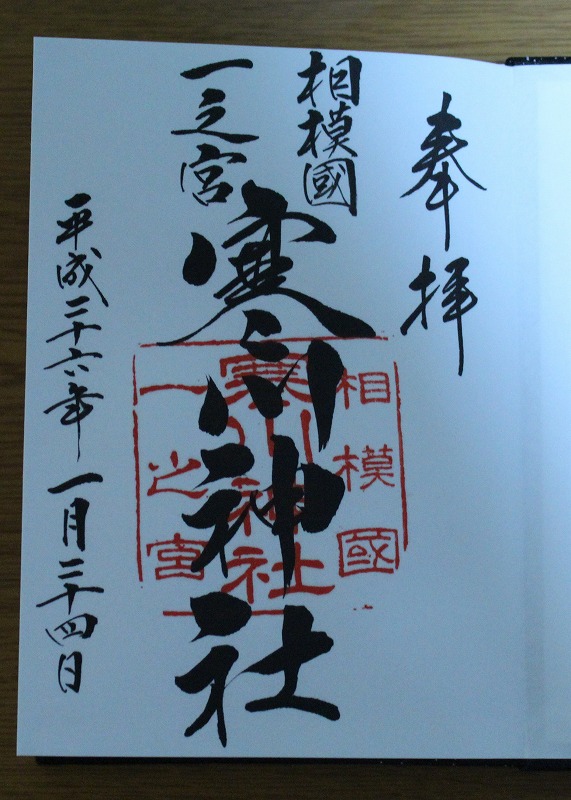 奉拝
相模國
一之宮
寒川神社
相模國
寒川神社
一之宮
平成二十六年一月二十四日